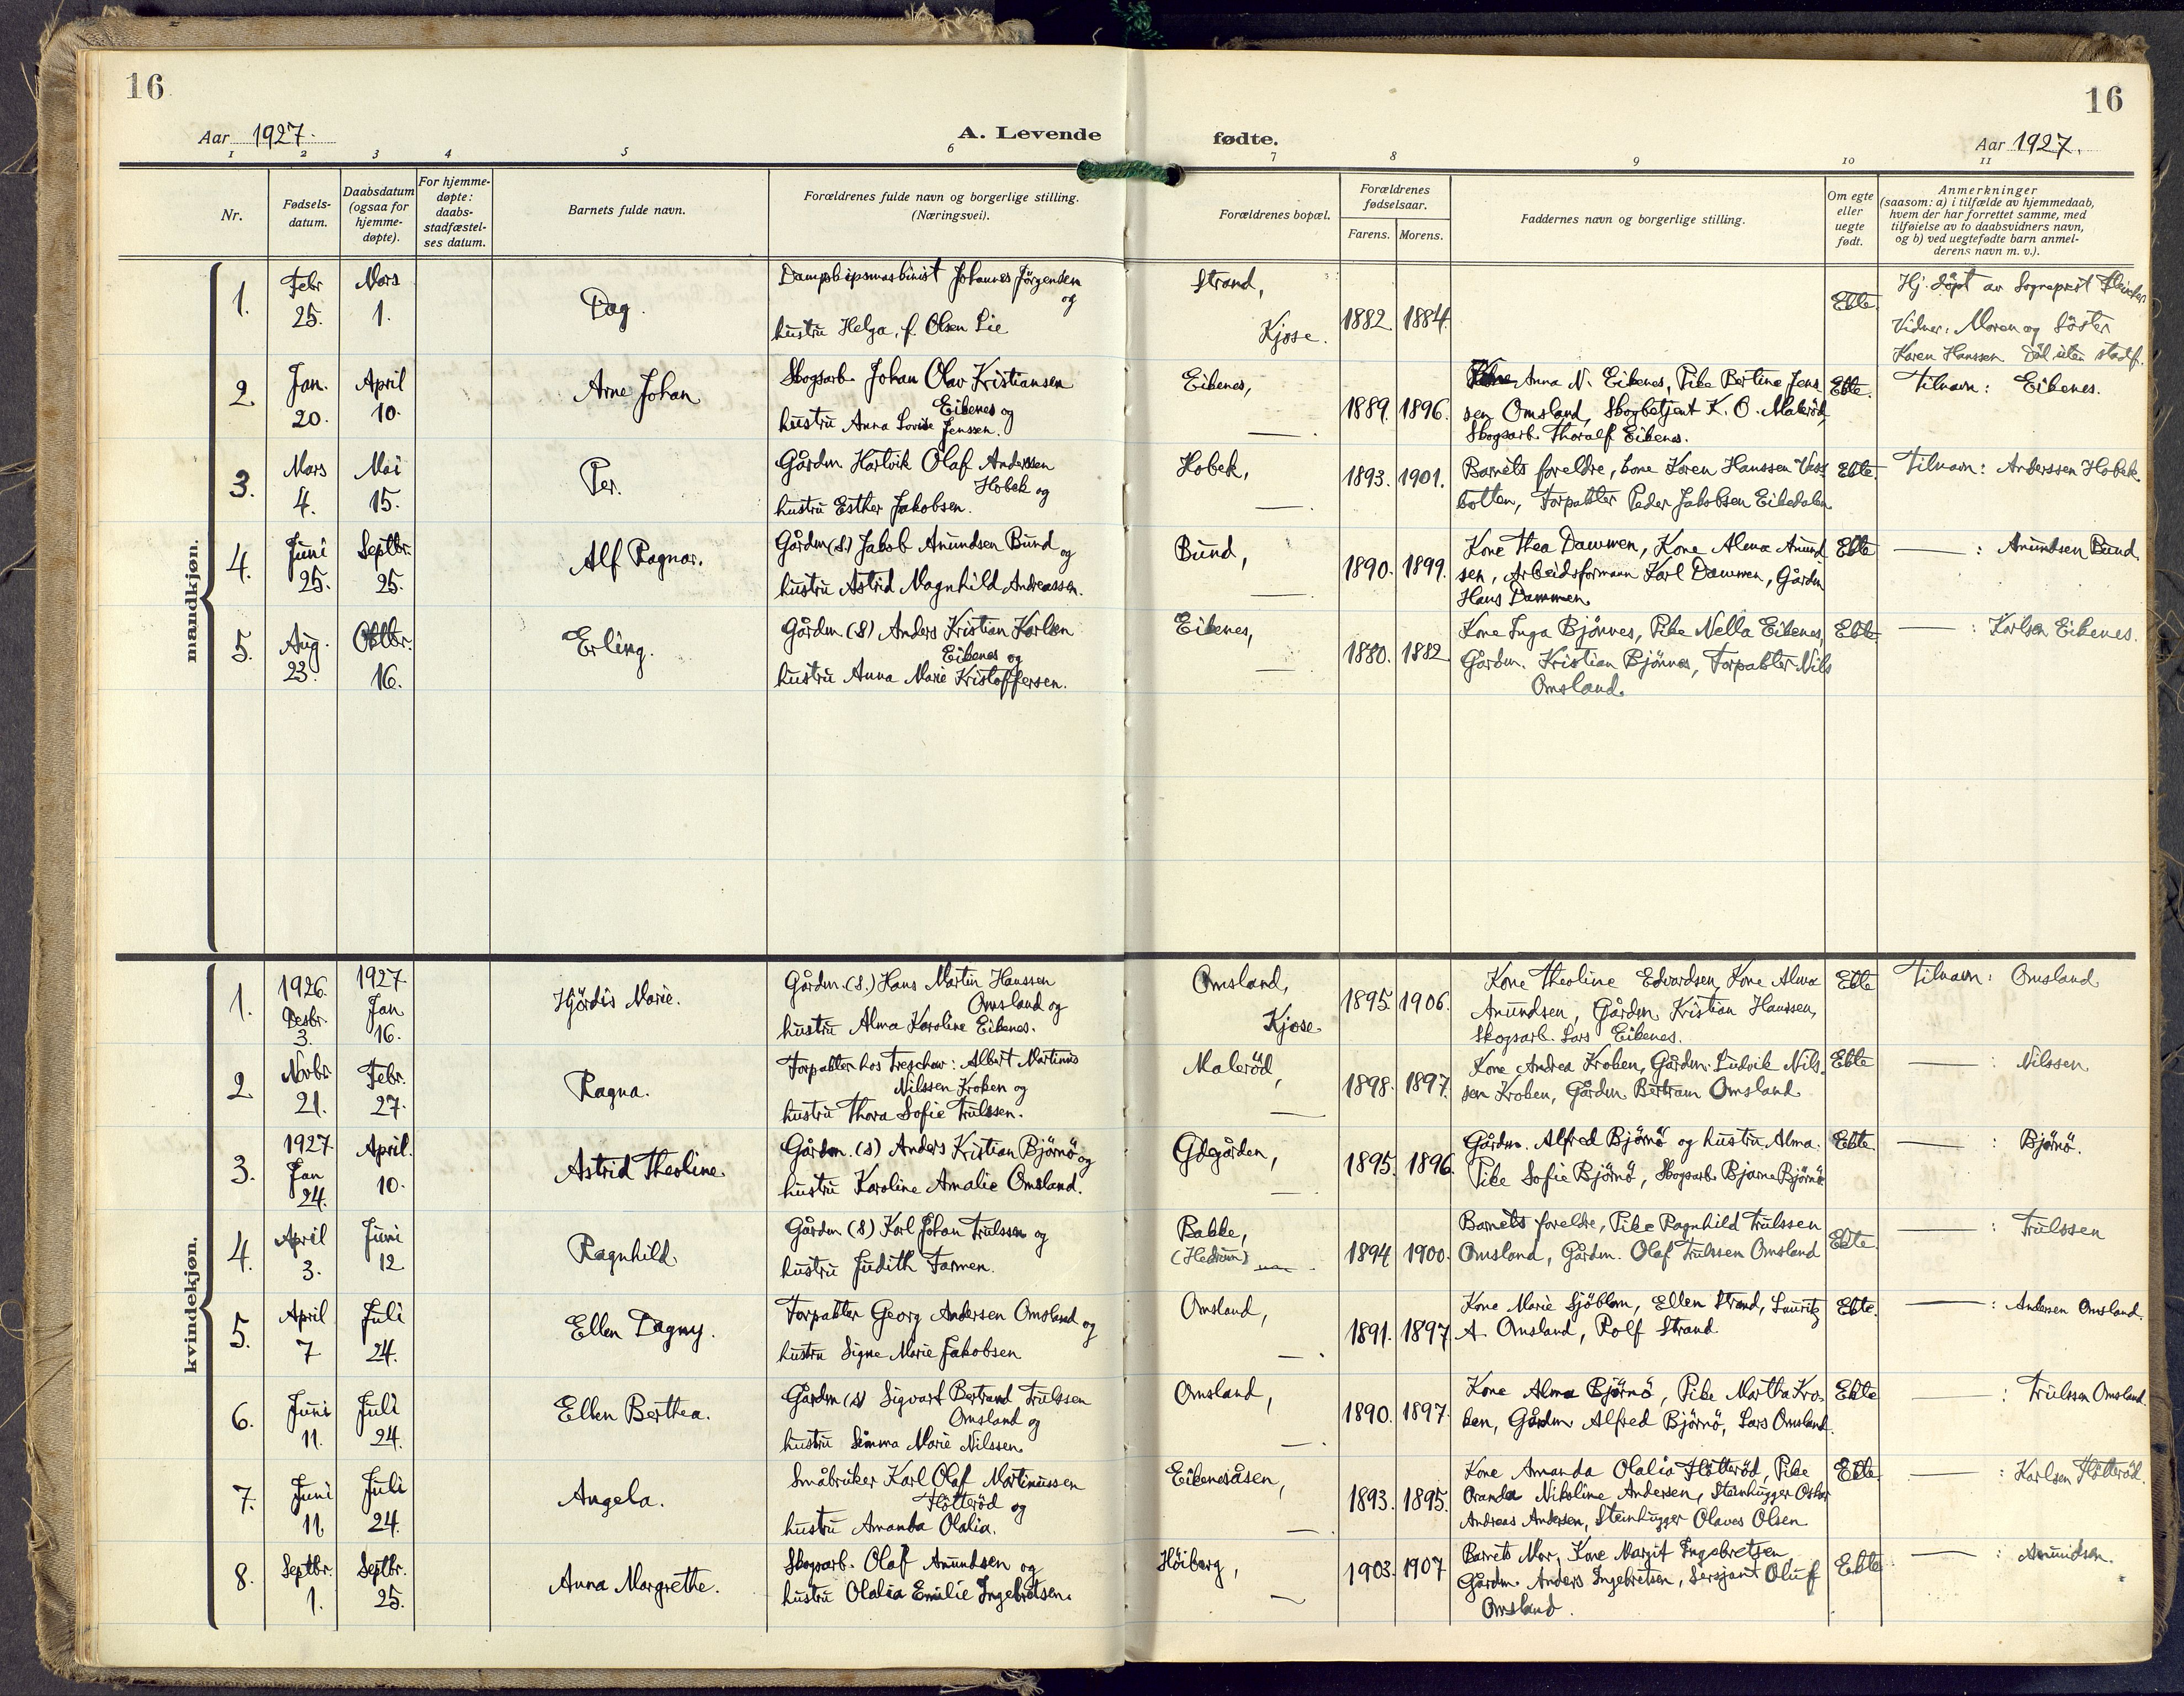 16
16
Aar 1927.
A. Levende
fødte.
Aar 1927.
1 2 3 4 5 6 7 8 9 10 11
Nr.
Fødsels-
datum.
Daabsdatum
(ogsaa for
hjemme-
døpte).
For hjemme-
døpte:
daabs-
stadfæstel-
ses datum.
Barnets fulde navn.
Forældrenes fulde navn og borgerlige stilling.
(Næringsvei).
Forældrenes bopæl.
Forældrenes
fødselsaar.
Farens. Morens.
Faddernes navn og borgerlige stilling.
Om egte
eller
uegte
født.
Anmerkninger
(saasom: a) i tilfælde av hjemmedaab,
hvem der har forrettet samme, med
tilføielse av to daabsvidners navn,
og b) ved uegtefødte barn anmel-
derens navn m. v.).
mandkjøn.
1.
Febr
25.
Mars
1.
Dag.
Dampskipsmaskinist Johannes Jörgensen
og
hustru Helga, f. Olsen Lie
Strand,
Kjose.
1882 1884.
Ekte.
Hj. döpt av Sogneprest
Vidner: Moren og Söster
Karen Hanssen
2.
Jan.
20.
April
10.
Arne Johan
Skogsarb. Johan Olav Kristiansen
Eikenes og
hustru Anna Lovise Jenssen.
Eikenes,
— .
1889. 1896.
Anna N. Eikenes, Pike Bertine Jens
sen Omsland, Skogbetjent K. O. Maleröd,
Skogsarb. Thoralf Eikenes.
Ekte.
Tilnavn: Eikenes.
3.
Mars
4.
Mai
15.
Per.
Gårdm Hartvik Olaf Anderssen
Hobek og
hustru Esther Jakobsen.
Hobek,
— .
1893. 1901.
Barnets foreldre, kone Karen Hanssen Vass
botten, Forpakter Peder Jakobsen Eikedalen
Ekte.
Tilnavn: Anderssen Hobek.
4.
Juni
25.
Septbr.
25.
Alf Ragnar.
Gårdm (S.) Jakob Amundsen Bund
og
hustru Astrid Magnhild Andreassen.
Bund,
— .
1890. 1899.
Kone Thea Dammen, Kone Alma Amund
sen, Arbeidsformann Karl Dammen, Gårdm
Hans Dammen.
Ekte
— : Amundsen Bund.
5.
Aug.
23.
Oktbr.
16.
Erling.
Gårdm. (S) Anders Kristian Karlsen
Eikenes og
hustru Anna Marie Kristoffersen.
Eikenes,
— .
1880. 1882.
Kone Inga Bjönnes, Pike Nella Eikenes,
Gårdm. Kristian Bjönnes, Forpakter Nils
Omsland.
Ekte
— : Karlsen Eikenes.
kvindekjøn.
1.
1926.
Desbr.
3.
1927.
Jan
16.
Hjördis Marie.
Gårdm. (S.) Hans Martin Hanssen
Omsland og
hustru Alma Karoline Eikenes.
Omsland,
Kjose.
1895. 1906.
Kone Theoline Edvardsen, Kone Alma
Amundsen, Gårdm Kristian Hanssen,
Skogsarb. Lars Eikenes.
Ekte
Tilnavn: Omsland
2.
Novbr.
21.
Febr.
27.
Ragna.
Forpakter hos Treschow: Albert Martinius
Nilssen Kroken og
hustru Thora Sofie Trulssen.
Maleröd,
— .
1898. 1897.
Kone Andrea Kroken, Gårdm. Ludvik Nils
sen Kroken, Gårdm Bertram Omsland
Ekte
— : Nilssen
3.
1927
Jan
24.
April.
10.
Astrid Theoline.
Gårdm. (s) Anders Kristian Björnö og
hustru Karoline Amalie Omsland.
Gdegården,
— .
1895. 1896.
Gårdm. Alfred Björnö og hustru Alma.
Pike Sofie Björnö, Skogsarb Bjarne Björnö.
Ekte
— : Björnö.
4.
April
3.
Juni
12
Ragnhild.
Gårdm (S) Karl Johan Trulssen og
hustru Judith Farmen.
Bakke,
(Hedrum) — .
1894 1900.
Barnets foreldre, Pike Ragnhild Trulssen
Omsland, Gårdm. Olaf Trulssen Omsland
Ekte
— : Trulssen
5.
April
7
Juli
24.
Ellen Dagny.
Forpakter Georg Andersen Omsland og
hustru Signe Marie Jakobsen
Omsland,
— .
1891. 1897
Kone Marie Sjöblom, Ellen Strand, Lauritz
A. Omsland, Rolf Strand
Ekte.
— : Andersen Omsland.
6.
Juni
11.
Juli
24.
Ellen Berthea.
Gårdm (s) Sigvart Bertrand Trulssen
Omsland og
hustru Marie Nilssen.
Omsland,
— .
1890. 1897.
Kone Alma Björnö, Pike Martha Kro-
ken, Gårdm Alfred Björnö, Lars Omsland.
Ekte
— : Trulssen Omsland.
7.
Juni
11.
Juli
24.
Angela.
Småbruker Karl Olaf Martinussen
Hötteröd og
hustru Amanda Olalia.
Eikenesåsen,
— .
1893. 1895.
Kone Amanda Olalia Hötteröd, Pike
Oranda Nikoline Andersen, Steinhugger Oskar
Andreas Andersen, Steinhugger Olaves Olsen
Ekte
— : Karlsen Hötteröd.
8.
Septbr.
1.
Septbr.
25.
Anna Margrethe.
Skogsarb. Olaf Amundsen og
hustru Olalia Emilie Ingebretsen.
Höiberg,
—
1903. 1907
Barnets Mor, Kone Margit Ingebretsen
Gårdm. Anders Ingebretsen, Sersjant Oluf
Omsland.
Ekte
— : Amundsen.